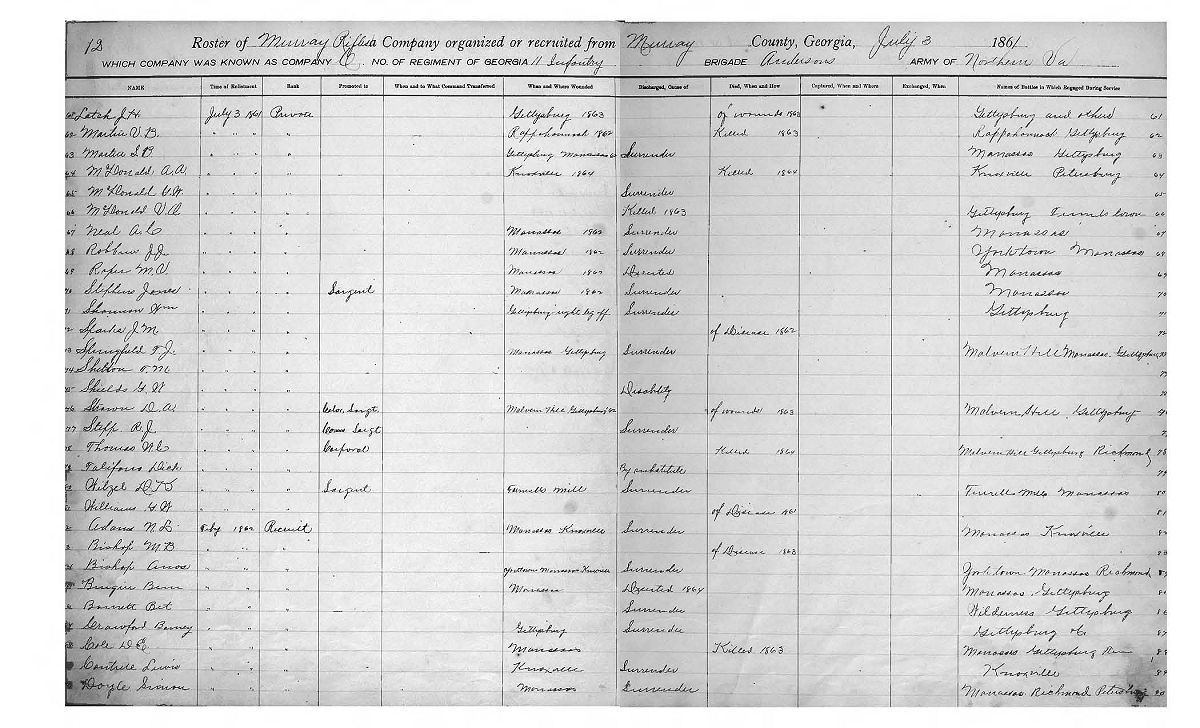 12 Roster of Murray Rifles a Company organized or recruited from Murray County, Georgia, July 3 1861
WHICH COMPANY WAS KNOWN AS COMPANY C, NO. OF REGIMENT OF GEORGIA 11 Infantry BRIGADE Andersons ARMY OF Northern Va
NAME Time of Enlistment Rank Promoted to When and to What Command Transferred When and Where Wounded Discharged, Cause of Died, When and How Captured, When and Where Exchanged, When Names of Battles in Which Engaged During Service
Latch J.H. July 3 1861 Private Gettysburg 1863 of wounds 1863 Gettysburg and others 61
62 Martin V.B. " " " " Rappahannock 1862 Killed 1863 Rappahannock Gettysburg 62
63 Martin S.B. " " " " Gettysburg Manassas Surrender Manassas Gettysburg 63
64 McDonald A.A. " " " " Knoxville 1864 Killed 1864 Knoxville Petersburg 64
65 McDonald " " " " Surrender 65
66 McDonald V.A. " " " " Killed 1863 Gettysburg 66
67 Neal A.C. " " " " Manassas 1862 Surrender Manassas 67
68 Robbins J.J. " " " " Manassas 1862 Surrender Yorktown Manassas 68
69 Roper M.V. " " " " Manassas 1862 Deserted Manassas 69
70 Stephens James " " " " Sargent Manassas 1862 Surrender Manassas 70
71 Shannon Wm " " " " Gettysburg right leg off Surrender Gettysburg 71
72 Sparks J.M. " " " " of Disease 1862 72
73 Springfield T.J. " " " " Manassas Gettysburg Surrender Malvern Hill Manassas Gettysburg 73
74 Shelton " " " "
75 Shields G.W. " " " " Disability
76 D.A. " " " " Color Sargt Malvern Hill Gettysburg of wounds 1863 Malvern Hill Gettysburg
77 Stepp R.J. " " " " Sargt Surrender
78 Thomas " " " " Corporal Killed 1864 Malvern Hill Gettysburg Richmond 78
Dick " " " " By substitute 79
" " " " Sargent Mill Surrender Mills Manassas 80
Williams G.W. " " " " of Disease 1861 81
Adams N.L. Feby 1862 Recruit Manassas Knoxville Surrender Manassas Knoxville
Bishop M.B. " " " of Disease 1863
Bishop Amos " " " Yorktown Manassas Knoxville Surrender Yorktown Manassas Richmond
" " " Deserted 1864 Manassas Gettysburg
Barrett " " " Surrender Wilderness Gettysburg 86
Crawford Barney " " " Gettysburg Surrender Gettysburg &c 87
Cole D.E. " " " Manassas Killed 1863 Manassas Gettysburg
Lewis " " " Knoxville Surrender Knoxville 89
Doyle Simon " " " Manassas Surrender Manassas Richmond Petersburg 90